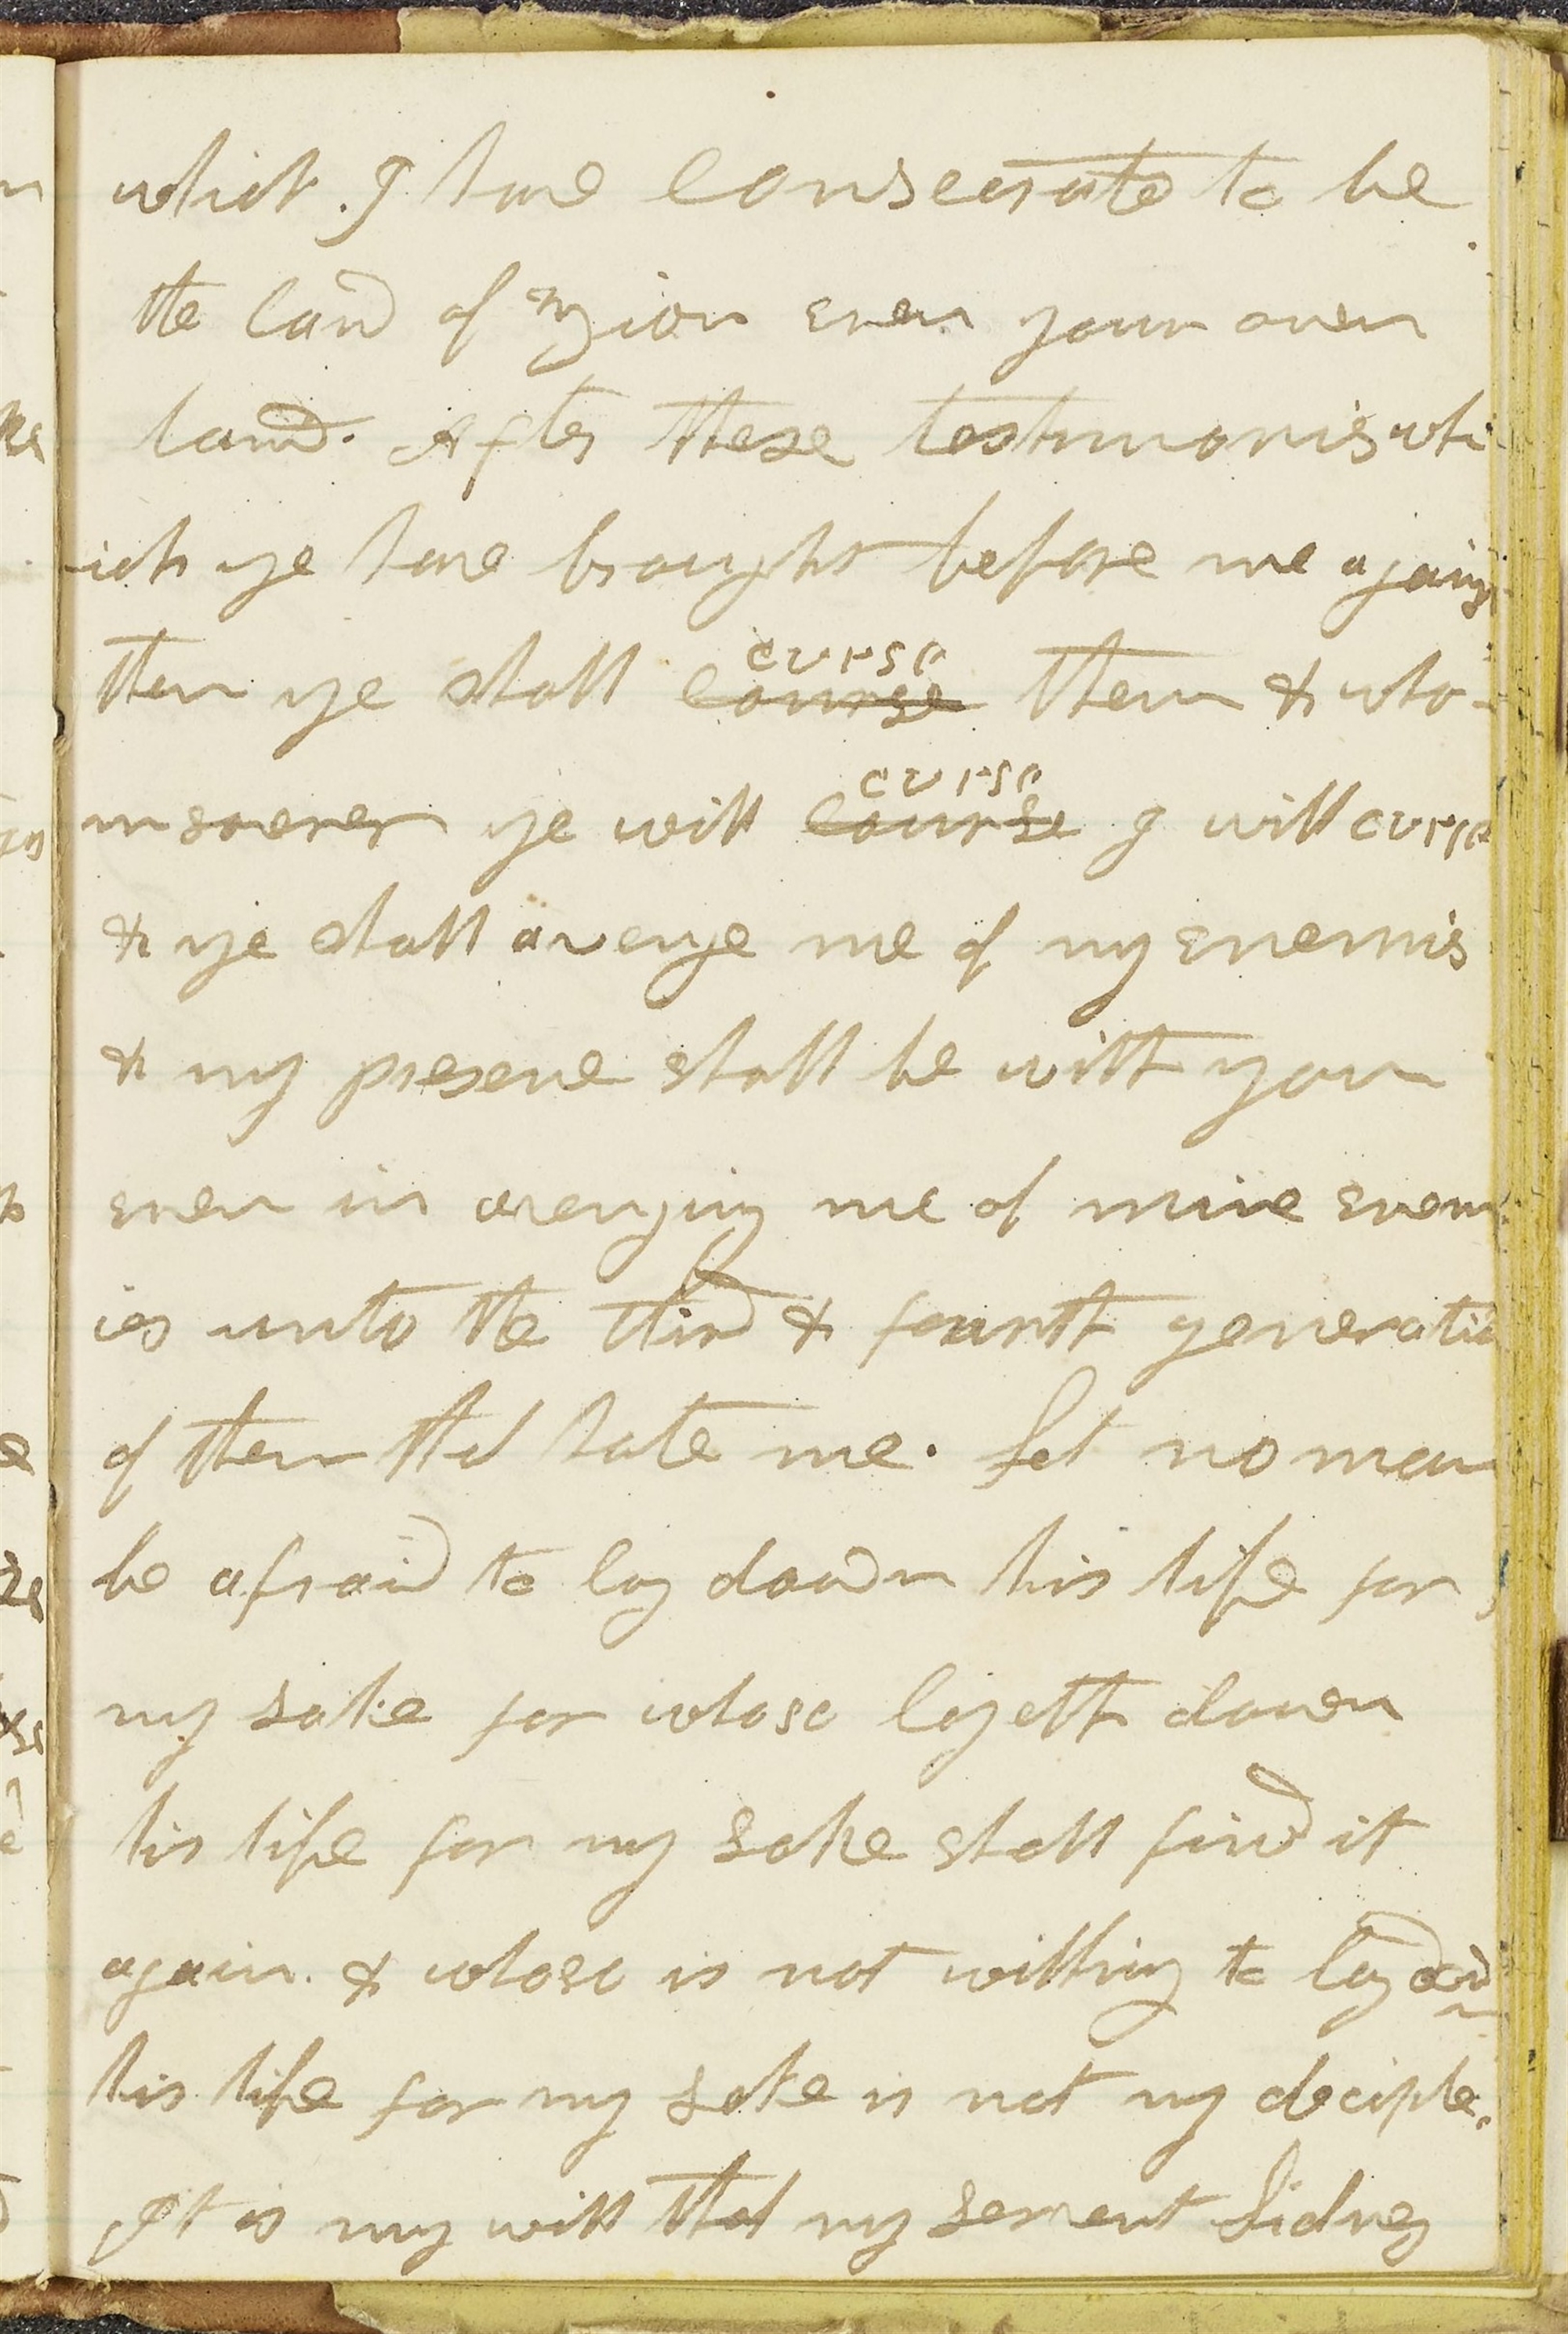 which I have consecrate to be
the land of Zion even your own
land. After these testimonis wh
ich ye have brought before me again
then ye shall course curse them & who-
msoever ye will course curse I will curse
& ye shall avenge me of my enemis
& my presene shall be with you
even in avenging me of mine enem
ies unto the third & fourth generatio
of them that hate me. Let no man
be afraid to lay down his life for
my sake for whoso layeth down
his life for my sake shall find it
again. & whoso is not willing to lay down
his life for my sake is not my deciple.
It is my will that my servent Sidney